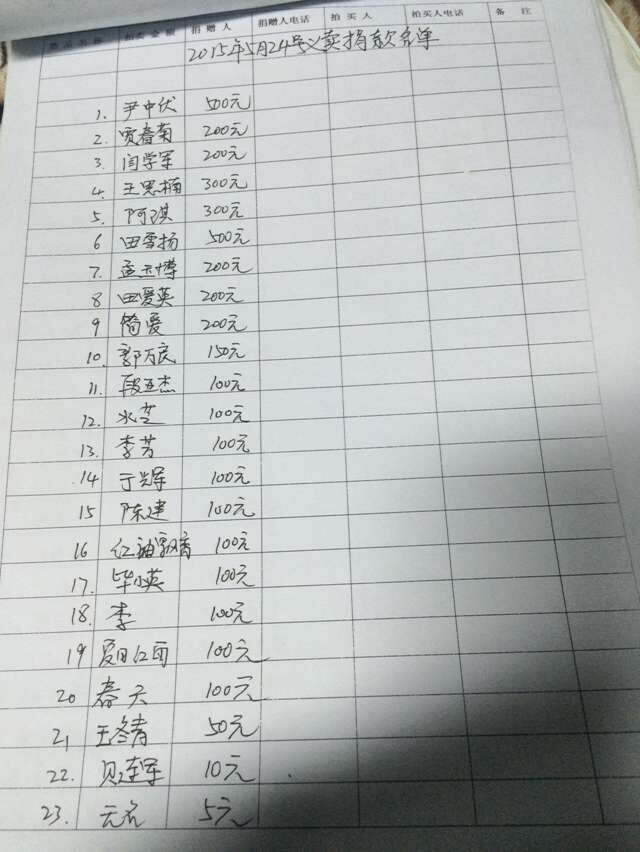 拍卖金额 捐赠人 捐赠人电话 拍买人 拍买人电话 备注
2015年5月24号义卖捐款名单
1. 尹中伏 500元
2. 贾春菊 200元
3. 闫学军 200元
4. 王思楠 300元
5. 阿琪 300元
6 田雪扬 500元
7. 孟玉博 200元
8 田爱英 200元
9 简爱 200元
10. 郭万庆 150元
11. 段亚杰 100元
12. 水芝 100元
13. 李芳 100元
14 于辉 100元
15 陈建 100元
16 红袖飘香 100元
17. 毕小英 100元
18. 李 100元
19 夏日江雨 100元
20 春天 100元
21 王冬青 50元
22. 贝连军 10元
23. 无名 5元